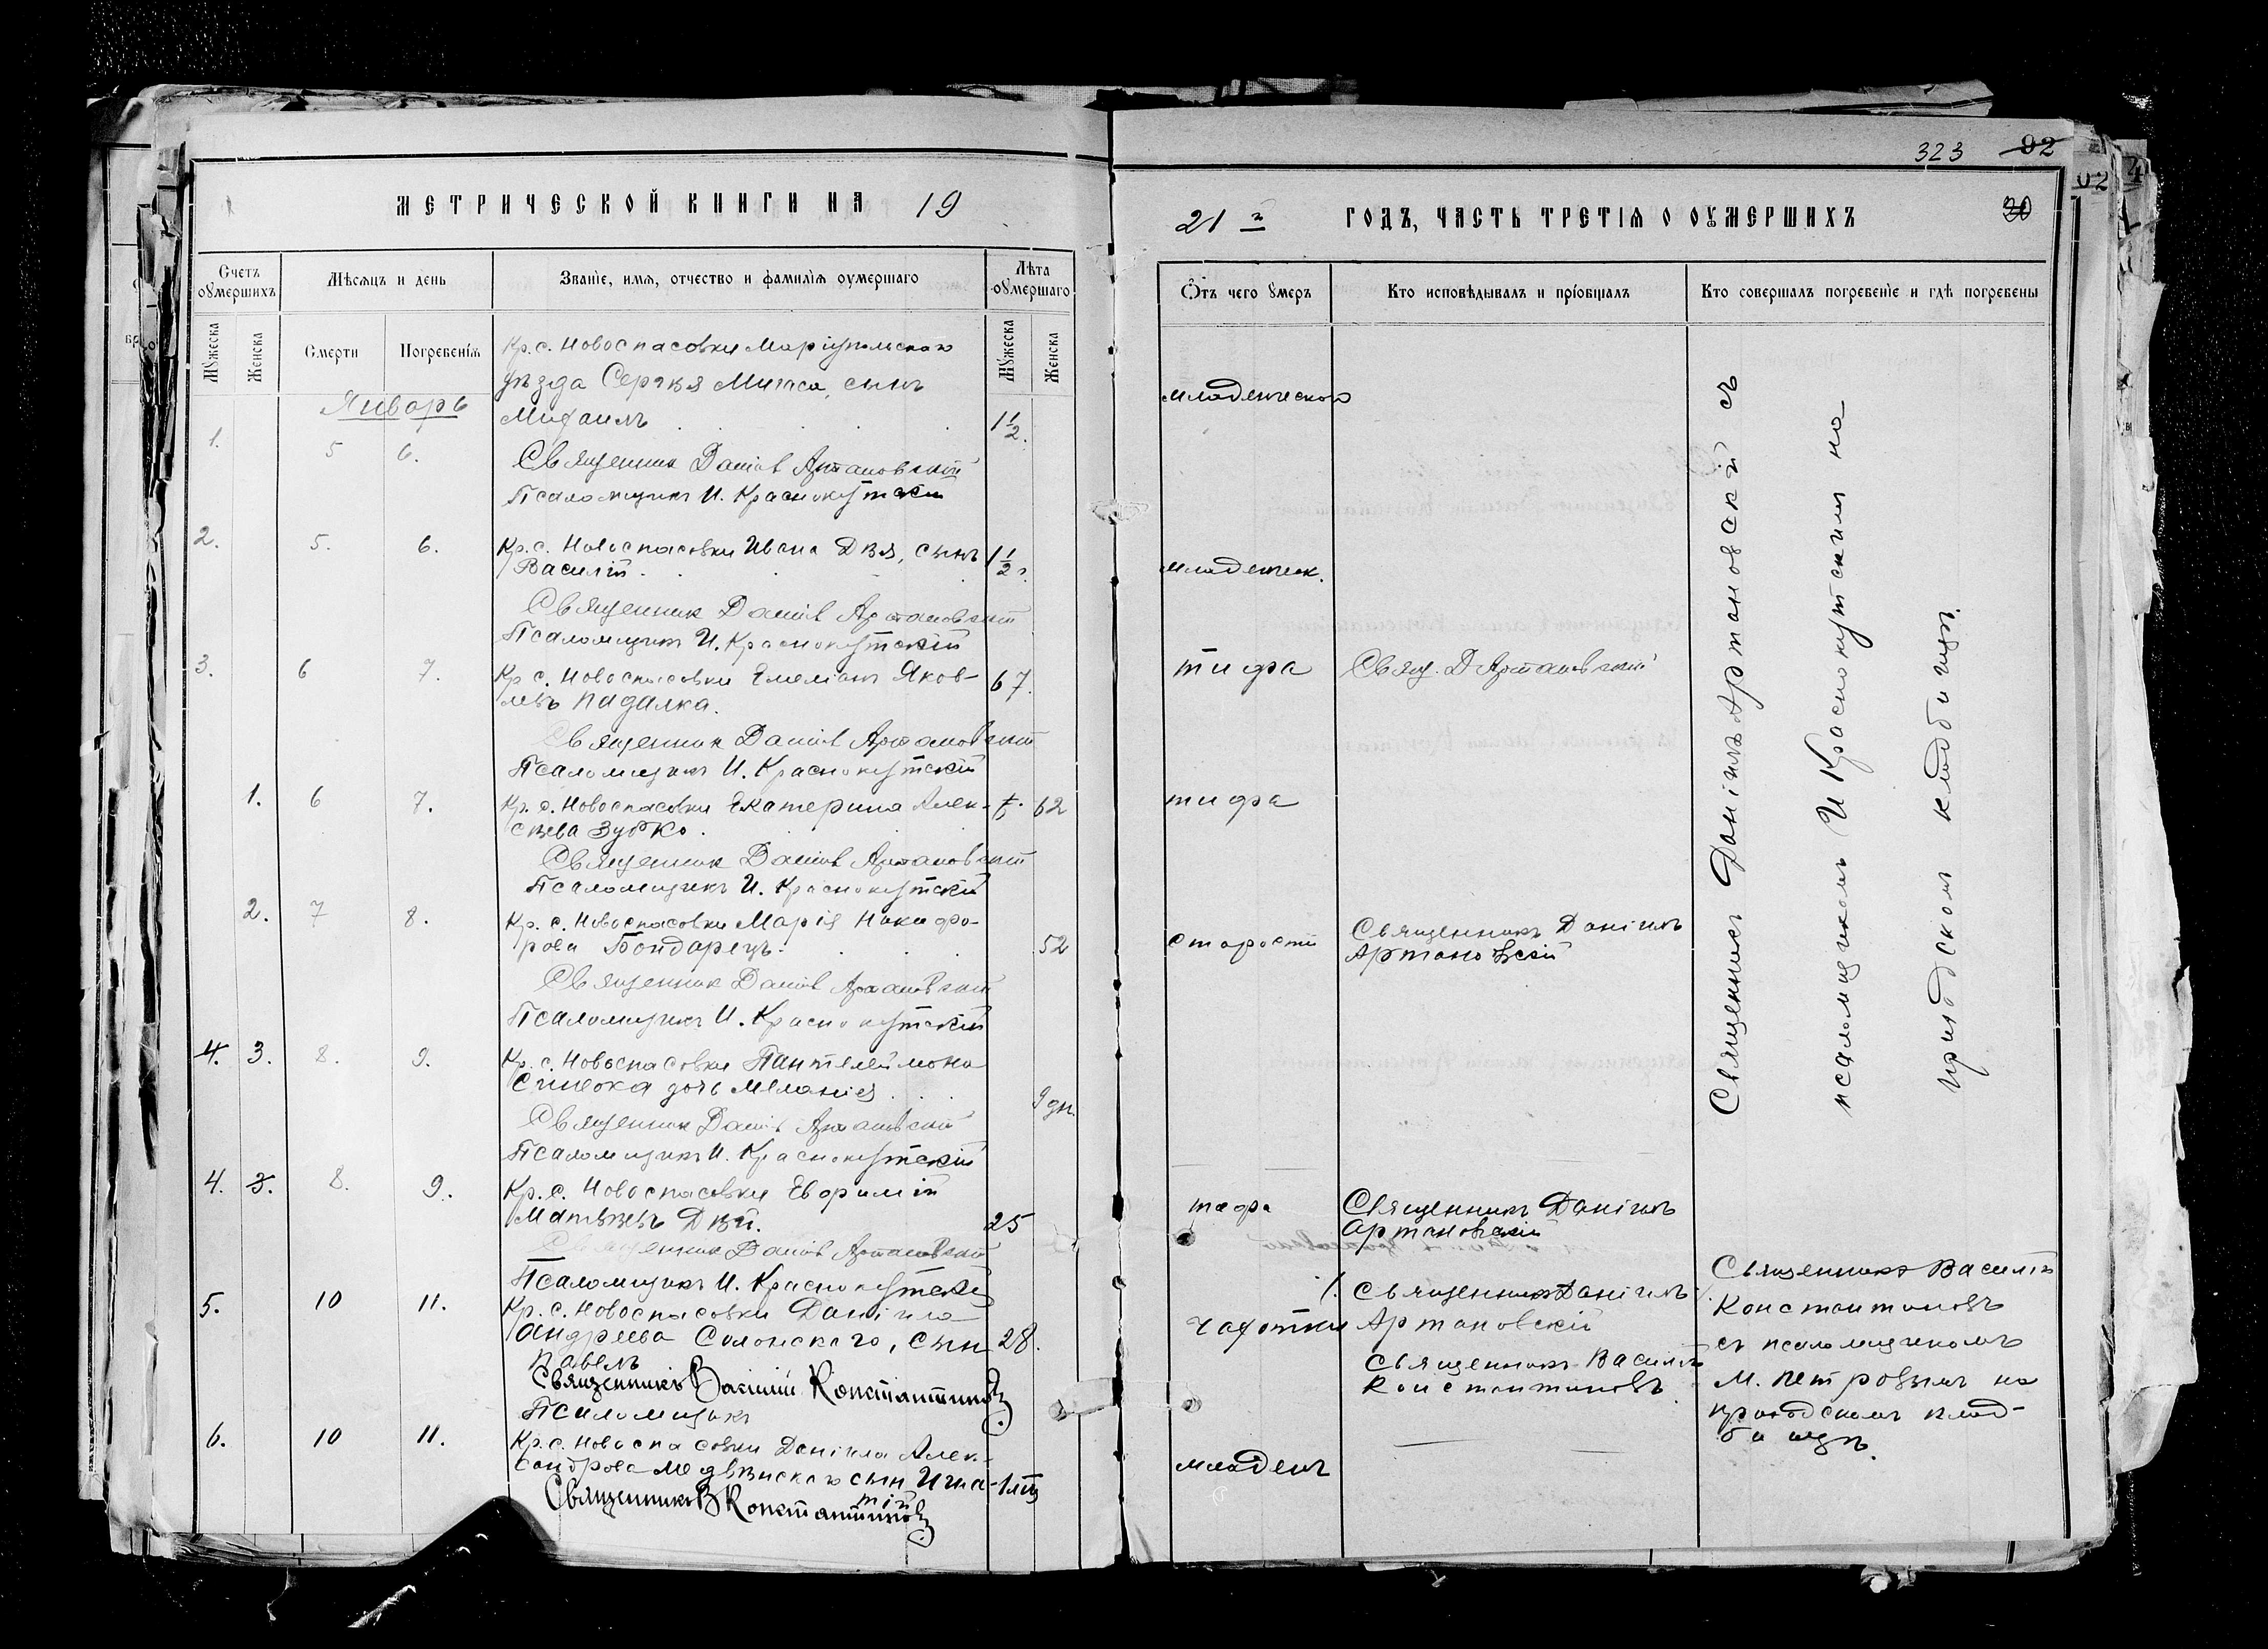 323 92
МЕТРИЧЕСКОЙ КНИГИ НА 19
21 г ГОДЪ, ЧАСТЬ ТРЕТІЯ О ОУМЕРШИХЪ 30
Счетъ оумершихъ
Мѣсяцъ и день
Званіе, имя, отчество и фамилія оумершаго
Лѣта оумершаго
Отъ чего умеръ
Кто исповѣдывалъ и пріобщалъ
Кто совершалъ погребеніе и гдѣ погребены
Мужеска
Женска
Смерти
Погребенія
Мужеска
Женска
Январь
Кр. с. Новоспасовки Маріупольскаго
уѣзда Сергѣя сынъ
1. 5 6. Михаилъ 1 1/2. младенческой
Священник Даніил Артановскій
Псаломщикъ И. Краснокутскій
2. 5. 6. Кр. с. Новоспасовки Ивана Дзя, сынъ 1 1/2 младенческ.
Василій
Священник Даніил Артановскій
Псаломщикъ И. Краснокутскій
3. 6 7. Кр с. Новоспасовки Емеліанъ Яков- 67. тифа Свящ. Д Артановскій
левъ Падалка.
Священник Даніил Артановскій
Псаломщикъ И. Краснокутскій
1. 6 7. Кр. с. Новоспасовки Екатерина Алек- 62 тифа
сѣева Зубко.
Священник Даніил Артановскій
Псаломщикъ И. Краснокутскій
2. 7 8. Кр. с. Новоспасовки Марія Никифо-
рова Бондарець. 52 старости Священникъ Даніилъ
Артановскій
Священник Даніил Артановскій
Псаломщикъ И. Краснокутскій
4. 3. 8. 9. Кр. с. Новоспасовки Пантелеймона
дочь Меланія 9 дн.
Священник Даніил Артановскій
Псаломщикъ И. Краснокутскій
4. 3. 8. 9. Кр. с. Новоспасовки Евфимій
Матвѣевъ Дзй. 25 тифа Священникъ Даніилъ
Артановскій
Священник Даніил Артановскій
Псаломщикъ И. Краснокутскій
5. 10 11. Кр. с. Новоспасовки Даніила
Андреева Солонскаго, сын 28. чахотки
Павелъ
Священникъ Даніилъ
Артановскій
Священникъ Василій
Константиновъ
Священникъ Василій Константиновъ
Псаломщикъ
6. 10 11. Кр. с. Новоспасовки Даніила Алек-
сандрова Медвѣнскаго сын Игна- младенч
тій
Священникъ В Константиновъ
Священникъ Даніилъ Артановскій съ
псаломщикомъ И Краснокутскимъ на
приходском кладбищѣ.
Священникъ Василій
Константиновъ
съ псаломщикомъ
М. Петровымъ на
приходскомъ клад-
бищѣ.